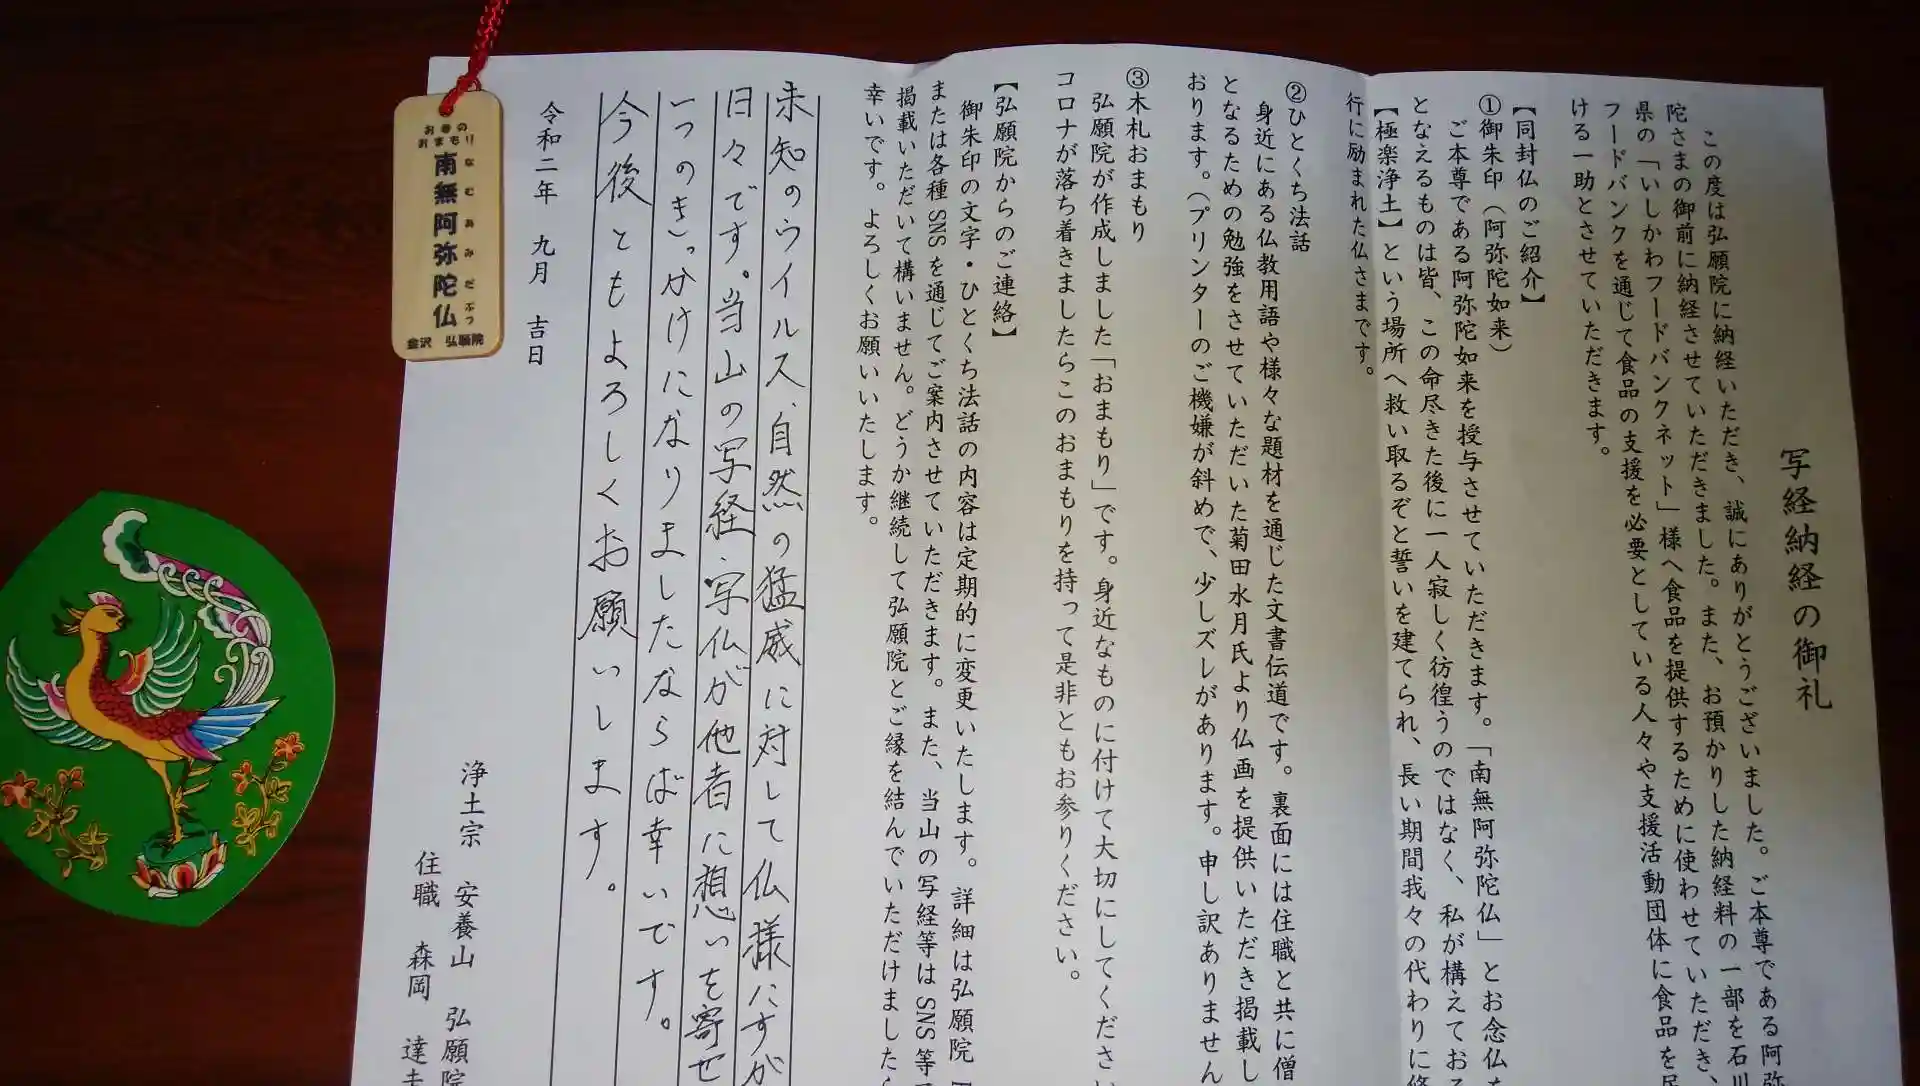 写経納経の御礼
この度は弘願院に納経いただき、誠にありがとうございました。ご本尊である阿弥
陀さまの御前に納経させていただきました。また、お預かりした納経料の一部を石川
県の「いしかわフードバンクネット」様へ食品を提供するために使わせていただき、
フードバンクを通じて食品の支援を必要としている人々や支援活動団体に食品を
ける一助とさせていただきます。
【同封仏のご紹介】
①御朱印（阿弥陀如来）
ご本尊である阿弥陀如来を授与させていただきます。「南無阿弥陀仏」とお念仏を
となえるものは皆、この命尽きた後に一人寂しく彷徨うのではなく、私が構えてお
【極楽浄土】という場所へ救い取るぞと誓いを建てられ、長い期間我々の代わりに修
行に励まれた仏さまです。
②ひとくち法話
身近にある仏教用語や様々な題材を通じた文書伝道です。裏面には住職と共に僧
となるための勉強をさせていただいた菊田水月氏より仏画を提供いただき掲載し
おります。（プリンターのご機嫌が斜めで、少しズレがあります。申し訳ありません
③木札おまもり
弘願院が作成しました「おまもり」です。身近なものに付けて大切にしてください
コロナが落ち着きましたらこのおまもりを持って是非ともお参りください。
【弘願院からのご連絡】
御朱印の文字・ひとくち法話の内容は定期的に変更いたします。詳細は弘願院
または各種SNSを通じてご案内させていただきます。また、当山の写経等はSNS等
掲載いただいて構いません。どうか継続して弘願院とご縁を結んでいただけました
幸いです。よろしくお願いいたします。
未知のウイルス、自然の猛威に対して仏様にすが
日々です。当山の写経・写仏が他者に想いを寄せ
一つのきっかけになりましたならば幸いです。
今後ともよろしくお願いします。
令和二年 九月 吉日
浄土宗 安養山 弘願院
住職 森岡 達
お寺の
おまもり
南無阿弥陀仏
なむあみだぶつ
金沢 弘願院